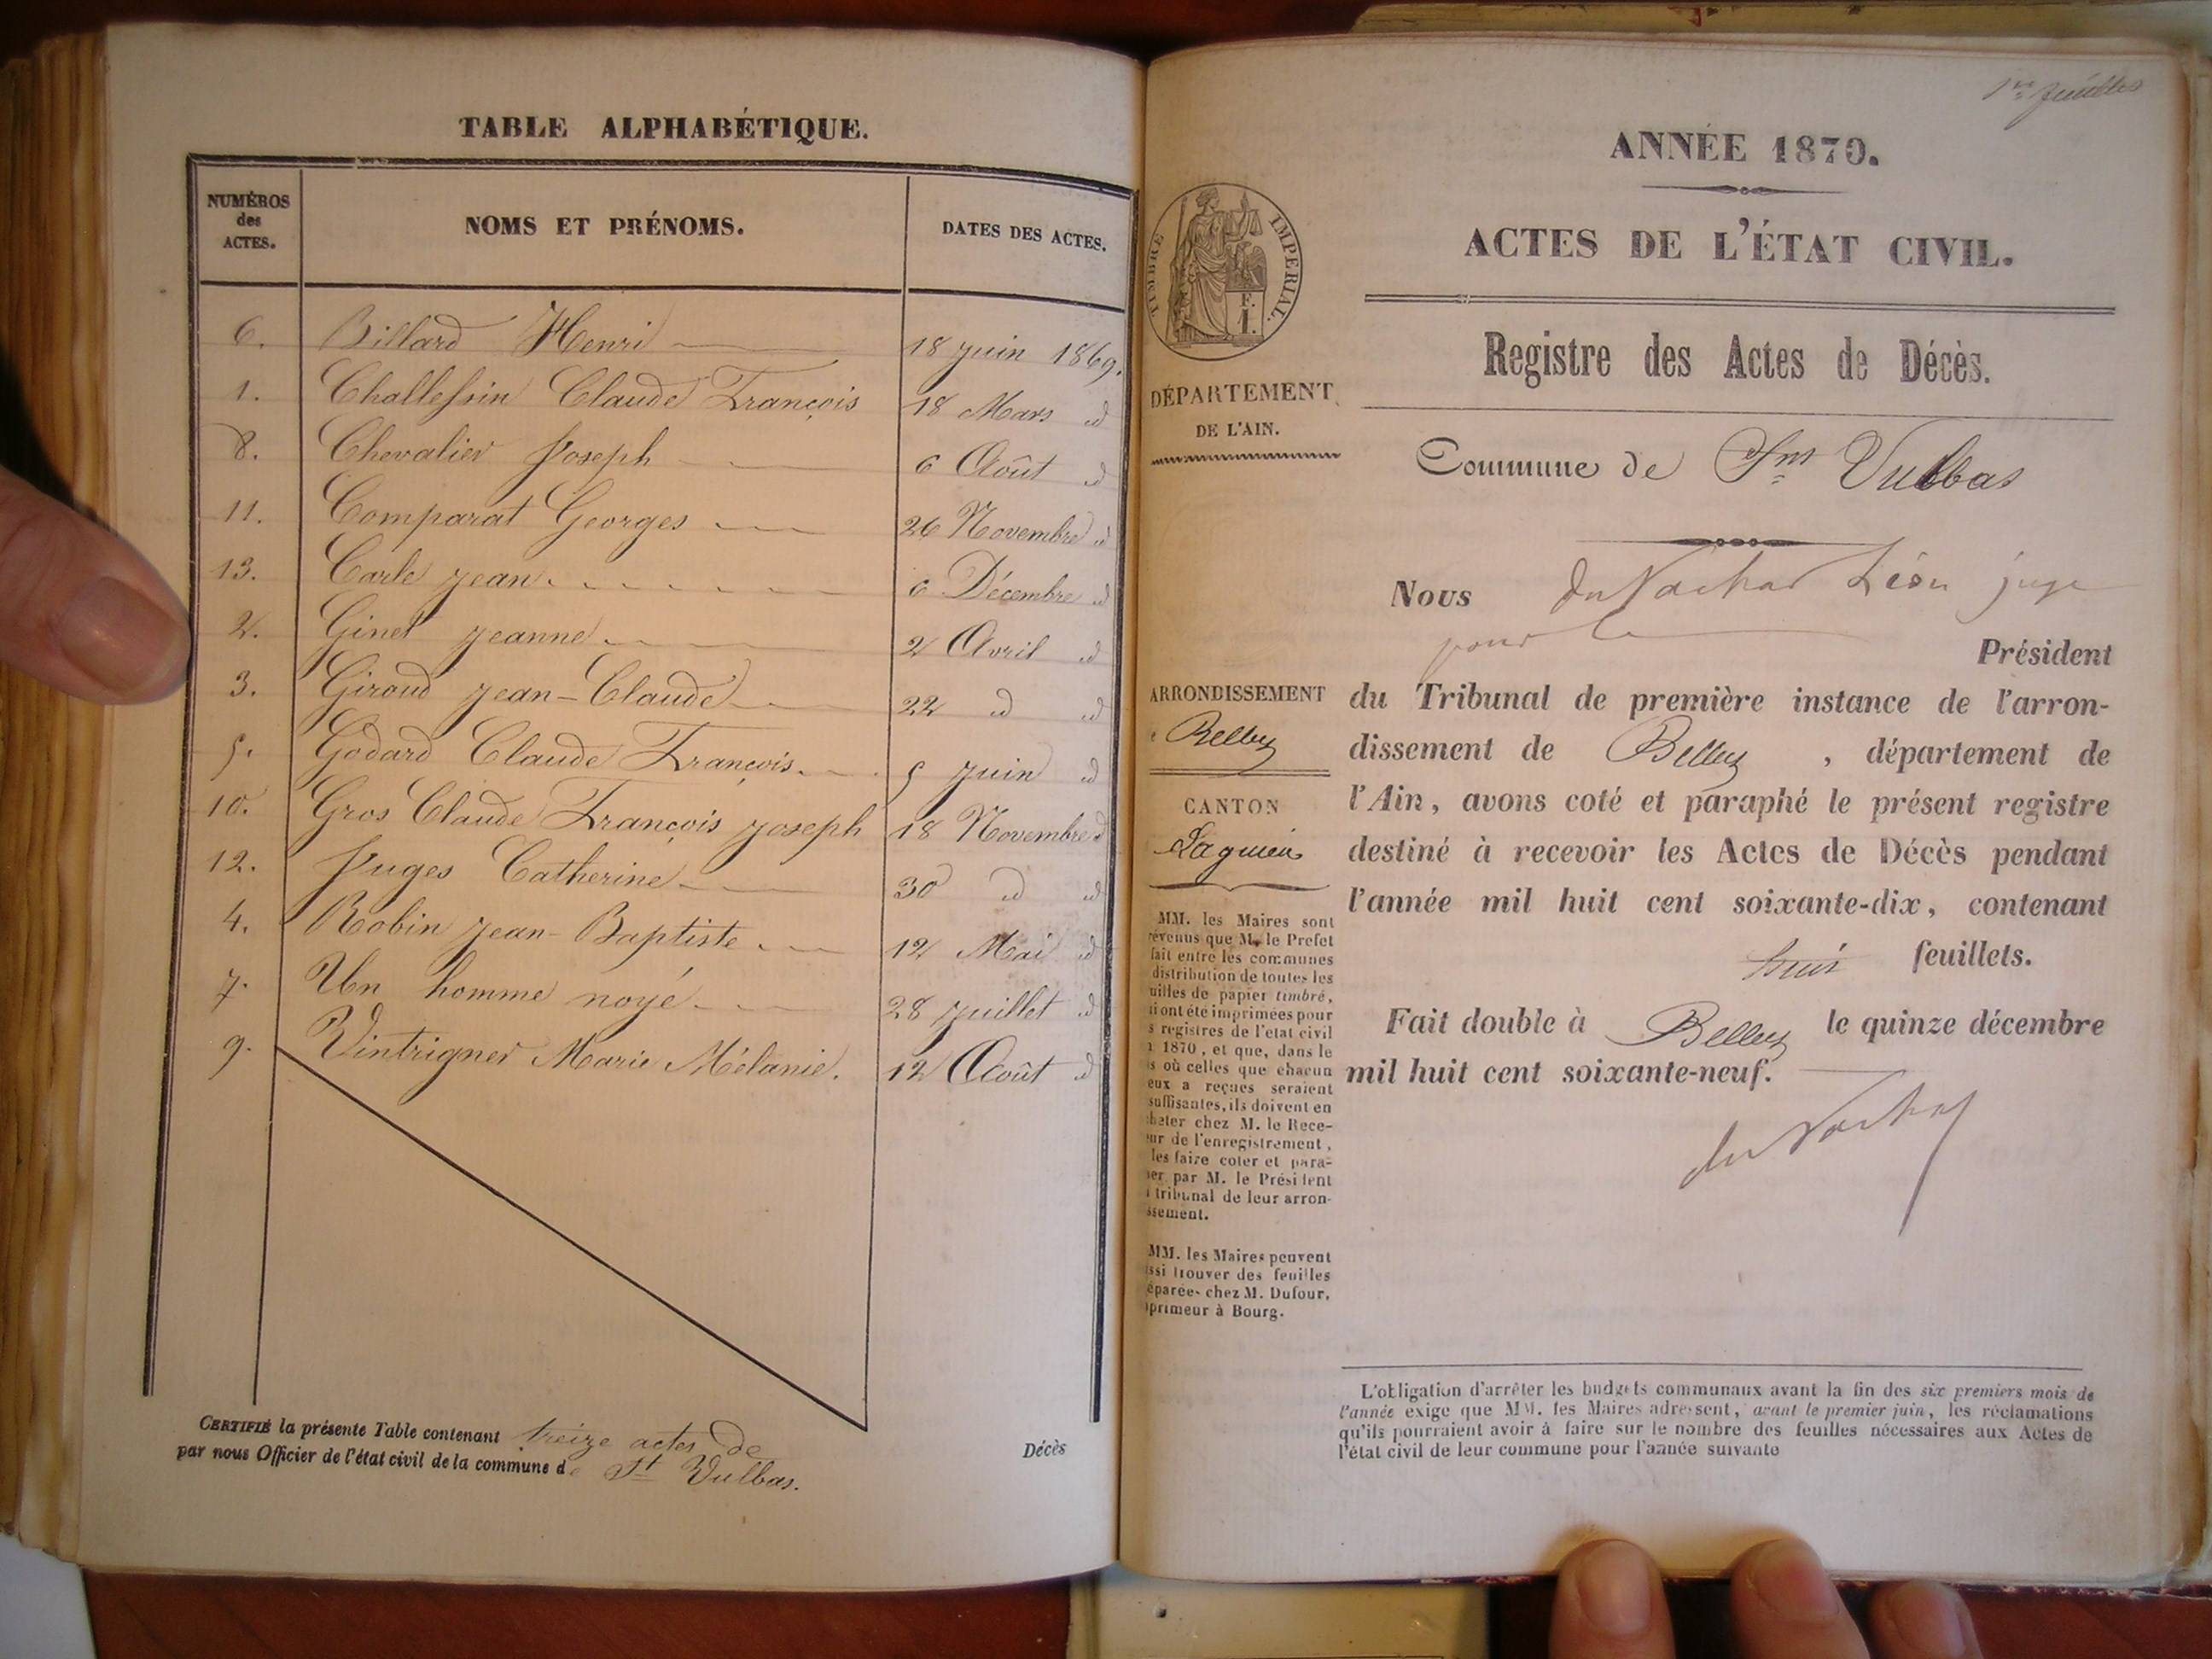 TABLE ALPHABÉTIQUE.
NUMÉROS des ACTES. NOMS ET PRÉNOMS. DATES DES ACTES.
6. Billard Henri 18 juin 1869.
1. Challessin Claude François 18 Mars d
8. Chevalier Joseph 6 Août d
11. Comparat Georges 26 Novembre d
13. Carle jean 6 Décembre d
2. Ginet jeanne 2 Avril d
3. Giroud jean-Claude 22 d d
5. Godard Claude François 5 juin d
10. Gros Claude François joseph 18 Novembre d
12. Juges Catherine 30 d d
4. Robin jean-Baptiste 12 Mai d
7. Un homme noyé 28 juillet d
9. Vintrigner Marie Mélanie. 12 Août d
CERTIFIÉ la présente Table contenant treize actes de
par nous Officier de l'état civil de la commune de St Vulbas.
Décès
1er feuillet
ANNÉE 1870.
ACTES DE L'ÉTAT CIVIL.
Registre des Actes de Décès.
Commune de St Vulbas
TIMBRE IMPERIAL.
F.
1.
DÉPARTEMENT
DE L'AIN.
ARRONDISSEMENT
Belley
CANTON
Lagnieu
MM. les Maires sont
révenus que M. le Prefet
fait entre les communes
distribution de toutes les
uilles de papier timbré,
i ont été imprimées pour
s registres de l'etat civil
1870, et que, dans le
s où celles que chacun
eux a reçues seraient
suffisantes, ils doivent en
heter chez M. le Rece-
ur de l'enregistrement,
les faire coter et para-
er par M. le Président
tribunal de leur arron-
ssement.
MM. les Maires peuvent
ssi trouver des feuilles
éparées chez M. Dufour,
primeur à Bourg.
Nous du Nachat Léon juge
pour le Président
du Tribunal de première instance de l'arron-
dissement de Belley, département de
l'Ain, avons coté et paraphé le présent registre
destiné à recevoir les Actes de Décès pendant
l'année mil huit cent soixante-dix, contenant
huit feuillets.
Fait double à Belley le quinze décembre
mil huit cent soixante-neuf.
L'obligation d'arrêter les budgets communaux avant la fin des six premiers mois de
l'année exige que MM. les Maires adressent, avant le premier juin, les réclamations
qu'ils pourraient avoir à faire sur le nombre des feuilles nécessaires aux Actes de
l'état civil de leur commune pour l'année suivante